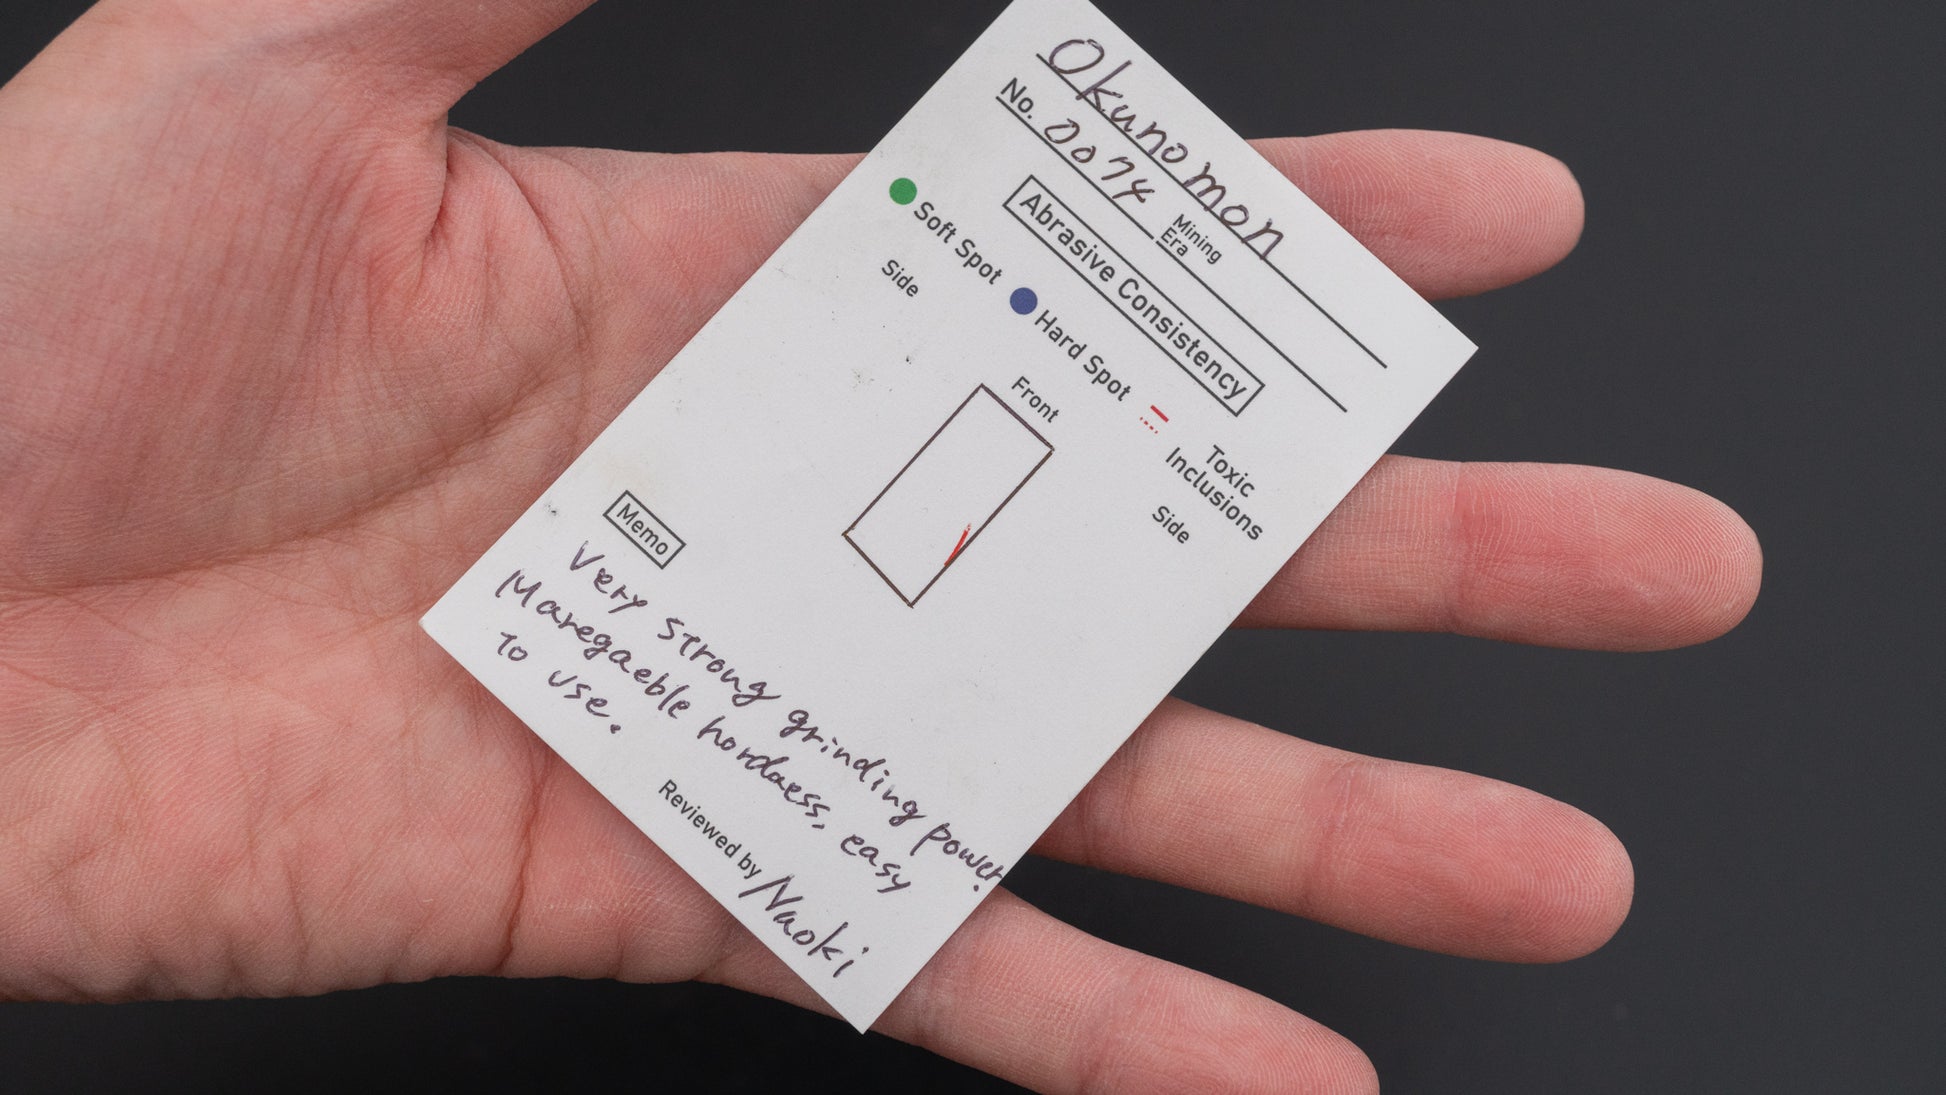 Okunomon
No. 0074 Mining Era
Abrasive Consistency
Soft Spot Hard Spot Toxic Inclusions
Side Front Side
Memo
Very strong grinding power.
Maregaeble hordness, easy
to use.
Reviewed by Naoki